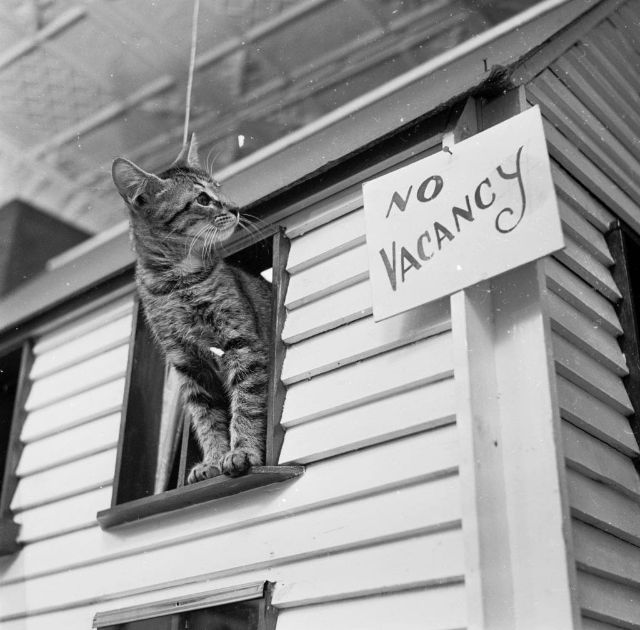 NO
VACANCY